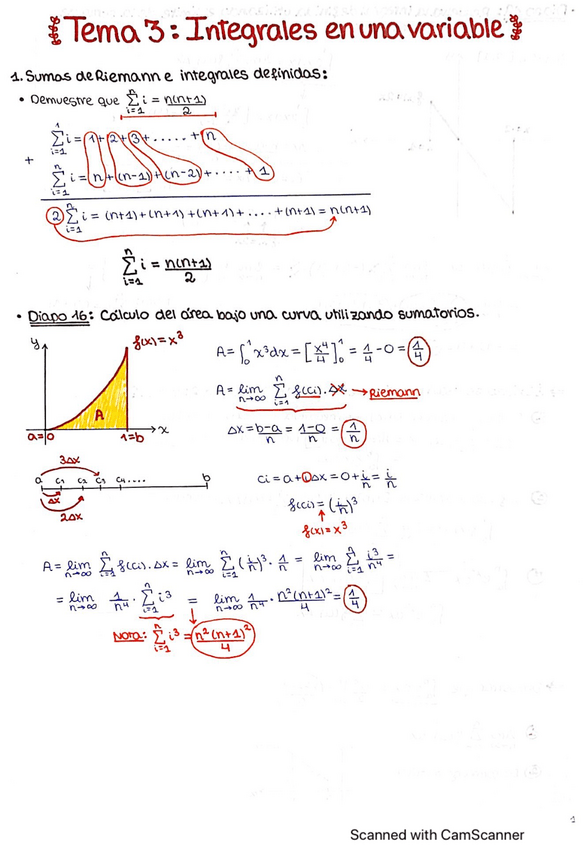 Tema 3: Integrales en una variable
1. Sumas de Riemann e integrales definidas:
• Demuestre que ∑_{i=1}^{n} i = n(n+1)/2
∑_{i=1}^{1} i = 1+2+3+.....+n
+
∑_{i=1}^{n} i = n+(n-1)+(n-2)+....+1
2∑_{i=1}^{n} i = (n+1)+(n+1)+(n+1)+....+(n+1) = n(n+1)
∑_{i=1}^{n} i = n(n+1)/2
• Diapo 16: Cálculo del área bajo una curva utilizando sumatorios.
y
f(x)=x³
A
a=0
1=b
x
A = ∫_0^1 x³dx = [x⁴/4]_0^1 = 1/4 - 0 = 1/4
A = lim_{n→∞} ∑_{i=1}^{n} f(ci).Δx → Riemann
Δx = b-a/n = 1-0/n = 1/n
3Δx
a c₁ c₂ c₃ c₄.... b
Δx
2Δx
ci = a+iΔx = 0+i/n = i/n
f(ci) = (i/n)³
f(x)=x³
A = lim_{n→∞} ∑_{i=1}^{n} f(ci).Δx = lim_{n→∞} ∑_{i=1}^{n} (i/n)³ · 1/n = lim_{n→∞} ∑_{i=1}^{n} i³/n⁴ =
= lim_{n→∞} 1/n⁴ · ∑_{i=1}^{n} i³ = lim_{n→∞} 1/n⁴ · n²(n+1)²/4 = 1/4
Nota: ∑_{i=1}^{n} i³ = n²(n+1)²/4
1
Scanned with CamScanner